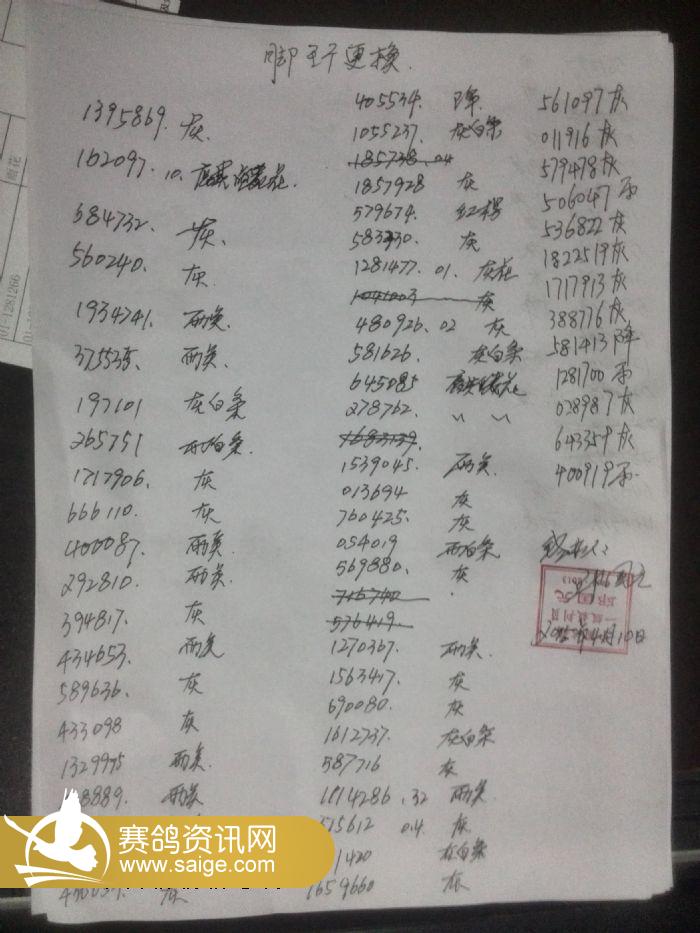 脚环更换
1395869. 灰.
162097. 10.
684732. 灰.
560240. 灰.
1934741. 雨点.
375535. 雨点.
197101 灰白条
265751 雨白条.
1717906. 灰
666110. 灰
400087. 雨点.
292810. 雨点.
394817. 灰
434653. 雨点
589636. 灰
433098 灰
1329975 雨点.
8889. 雨点
灰
405534. 降.
1055237. 灰白条
185738.04
1857928 灰
579674. 红楞
583330. 灰
1281477. 01. 灰花
1041003 灰
480926. 02 灰
581626. 灰白条
645085
278762. 〃 〃
1683139.
1539045. 雨点.
013694 灰
760425. 灰
054019 雨白条
569880. 灰
715740
576419
1270367. 雨点.
1563417. 灰
690080. 灰
1612737. 灰白条
587716 灰
1114286.32 雨点
515612 04. 灰
1420 灰白条
1659660 灰
561097灰
011916灰
579478灰
506047 雨
536822 灰
1822519灰
1717913灰
388776灰
581413降
1281700雨
028987灰
643359灰
400919雨.
2015年4月10日
2013
01-1281266
赛鸽资讯网
www.saige.com